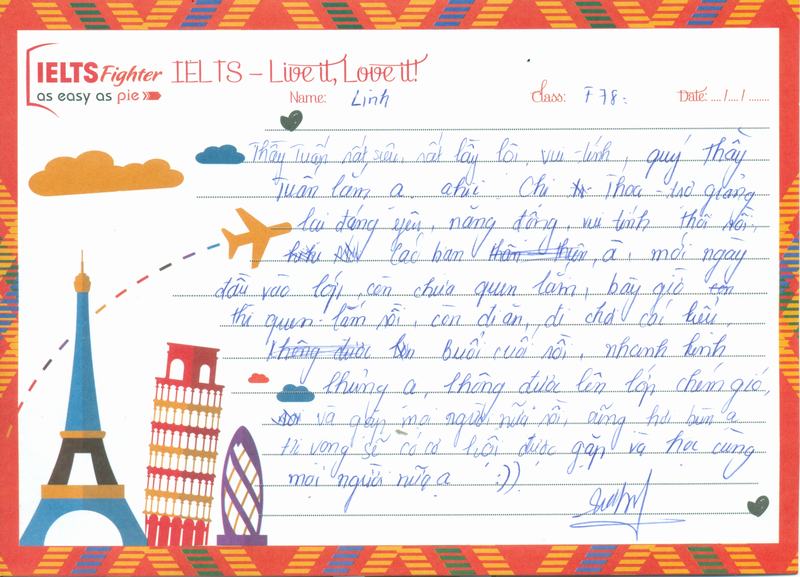 IELTS Fighter IELTS – Live it, Love it!
as easy as pie
Name: Linh Class: F78: Date: .../.../......
Thầy Tuấn rất siêu, rất lầy lội, vui tính, quý Thầy
Tuấn lắm ạ. ahihi. Chị Thoa - trợ giảng
lại đáng yêu, năng động, vui tính thôi rồi,
Các bạn thân thiện, à, mới ngày
đầu vào lớp, còn chưa quen lắm, bây giờ
thì quen lắm rồi, còn đi ăn, đi chơi các kiểu,
không được Buổi cuối rồi, nhanh kinh
khủng ạ, không được lên lớp chém gió,
và gặp mọi người nữa rồi, cũng hơi buồn ạ
Hi vọng sẽ có cơ hội được gặp và học cùng
mọi người nữa ạ :))